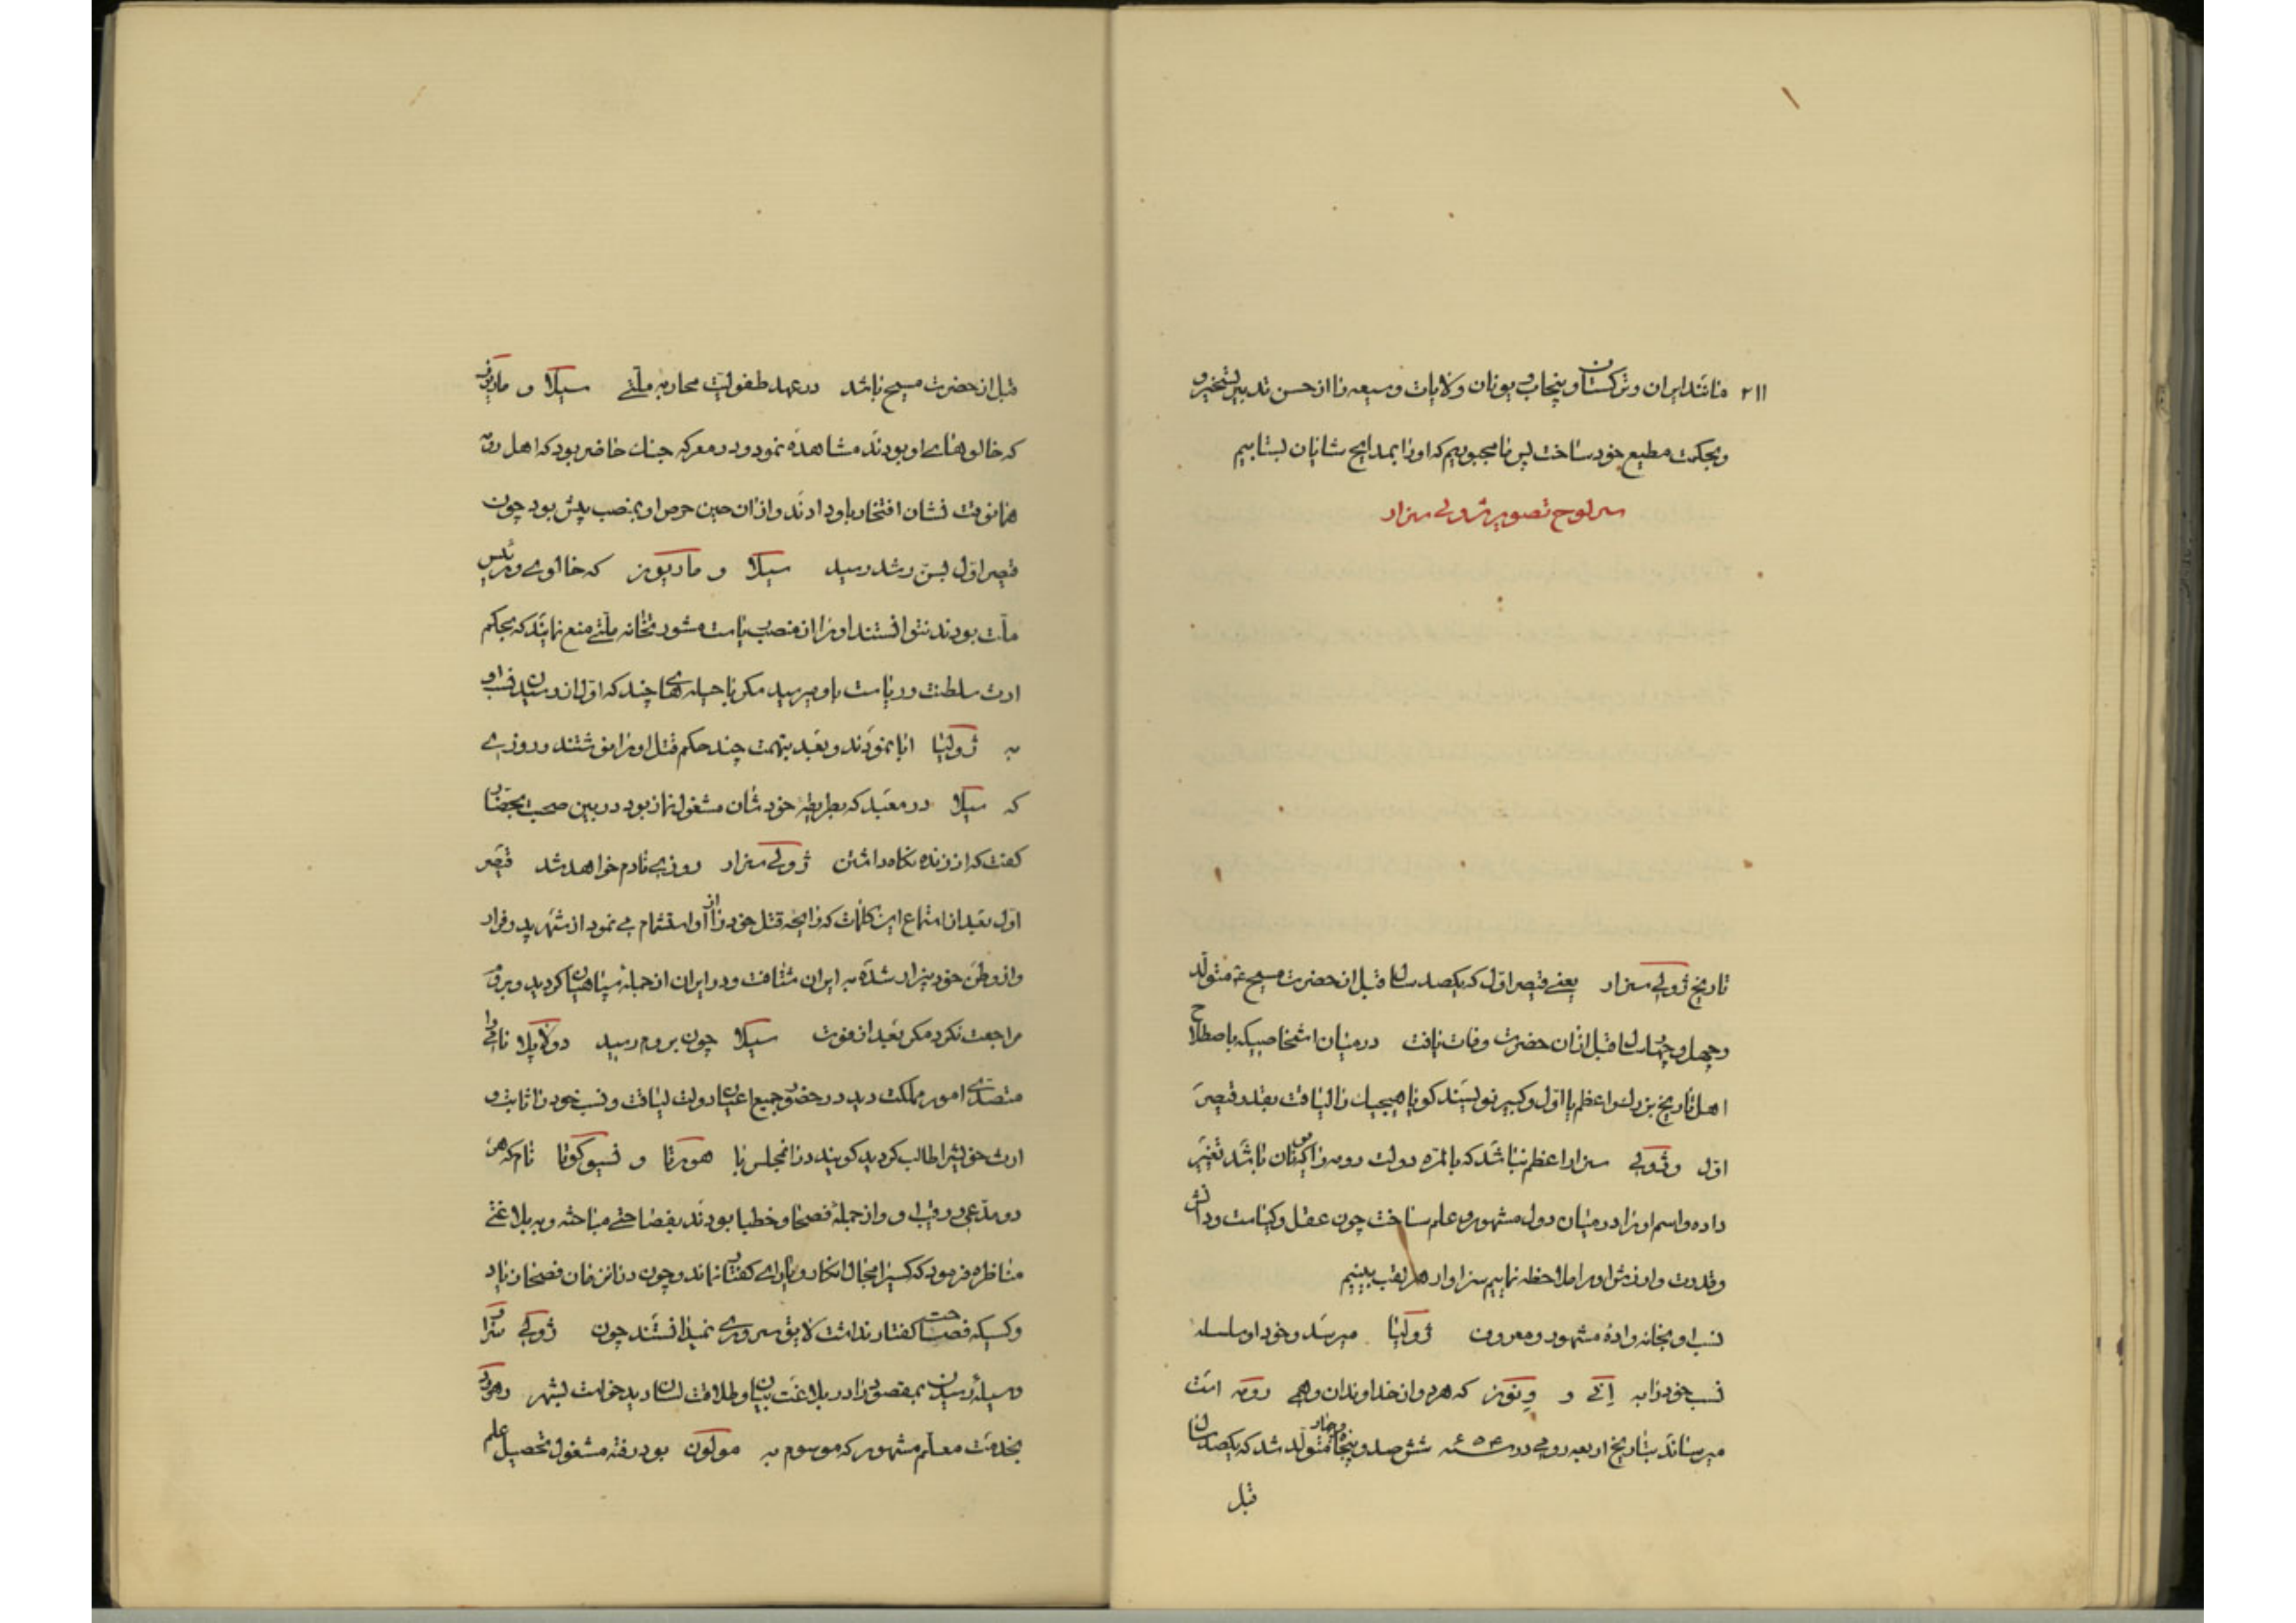 ۲۱۱ مانند ایران و ترکستان و پنجاب و یونان و ولایات وسیعه را از حسن تدبیر تسخیر و
و بحکمت مطیع خود ساخت پس ما مجبوریم که او را بمدایح شایان بستاییم
سرلوح تصویر ژولی سزار
تاریخ ژولی سزار یعنی قیصر اول که یکصد سال قبل از حضرت مسیح ع متولد
و چهل و چهار سال قبل از آن حضرت وفات یافت در میان اشخاصیکه باصطلاح
اهل تاریخ بزرك و اعظم یا اول و کبیر نویسند کویا هیچیك را لیاقت بقدر قیصر
اول و ژولی سزار اعظم نباشد که بالمره دولت رومه را تغییر
داده و اسم او را در میان دول مشهور و علم ساخت چون عقل و کیاست و دانش
و قدرت و ورزش او را ملاحظه نماییم سزاوار هر لقب بینیم
نسب او بخانواده مشهور و معروف ژولیا میرسد و خود او سلسله
نسب خود را به اِنی و وِنوز که هر دو از خداوندان وهمی رومه است
میرساند بتاریخ اربعه رومی در سنه ۶۵۴ ششصد و پنجاه و چهار متولد شد که یکصد سال
قبل
قبل از حضرت مسیح باشد در عهد طفولیت محاربه ملتی سیلا و ماریوز
که خالوهای او بودند مشاهده نمود و در معرکه جنك حاضر بود که اهل رومه
همانوقت نشان افتخار باو دادند و از آن حین حرص او بمنصب بیش بود چون
قیصر اول بسن رشد رسید سیلا و ماریوز که خالوی و رئیس
ملت بودند نتوانستند او را از منصب ریاست مشورتخانه ملتی منع نمایند که بحکم
ارث سلطنت و ریاست باو میرسید مکر با حیله های چند که اول از وی نسب او
به ژولیا ابا نمودند و بعد بتهمت چند حکم قتل او را نوشتند و روزی
که سیلا در معبد که بطریقه خودشان مشغول نماز بود در بین صحبت بحضار
کفت که از زنده نکاه داشتن ژولی سزار روزی نادم خواهد شد قیصر
اول بعد از استماع این کلمات که رایحه قتل خود را از او استشمام می نمود از شهر بدر و فرار
و از وطن خود بیزار شده به ایران شتافت و در ایران از جمله سپاهیان کردید و بروم
مراجعت نکرد مکر بعد از فوت سیلا چون بروم رسید دولابلا نامی را
متصدی امور مملکت دید در حضور جمیع اعیان دولت لیاقت و نسب خود را ثابت و
ارث خویش را طالب کردید کویند در آنمجلس با هورتا و سیوکونا نام که هر
دو مدعی و رقیب او و از جمله فصحا و خطبا بودند بفصاحتی مباحثه و به بلاغتی
مناظره فرمود که کسیرا مجال انکار و یارای کفتار نماند و چون در آنزمان فصحا زیاد
و کسیکه فصاحت کفتار نداشت لایق سروری نمیدانستند چون ژولی سزار
وسیله رسیدن بمقصود را در بلاغت بیان و طلاقت لسان دید خواست بشهر
بخدمت معلم مشهور که موسوم به مولون بود رفته مشغول تحصیل علم